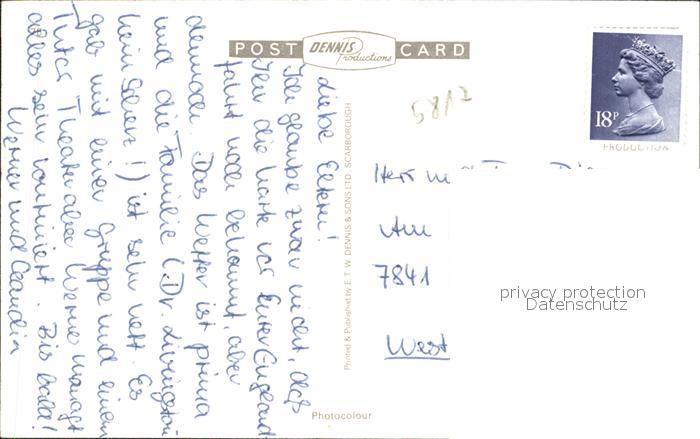 POST DENNIS Productions CARD
18P
PRODUCTION
5812
Liebe Eltern!
Ich glaube zwar nicht, daß
Ihr die Karte vor Eurer England
fahrt noch bekommt, aber
dennoch. Das Wetter ist prima
und die Familie (Dr. Livingston
kein Scherz!) ist sehr nett. Es
gab mit einer Gruppe und einem
Tutor Theater aber Werner managt
alles sehr routiniert. Bis bald!
Werner und Claudia
Printed & Published by E. T. W. DENNIS & SONS LTD. SCARBOROUGH
Photocolour
Herr
Am
7841
West
privacy protection
Datenschutz